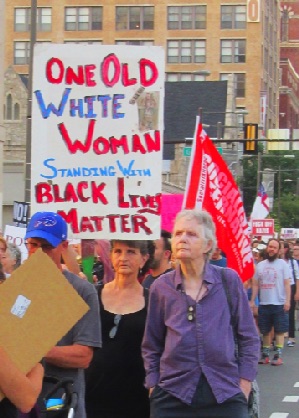 ONE OLD
WHITE
WOMAN
STANDING WITH
BLACK LIVES
MATTER